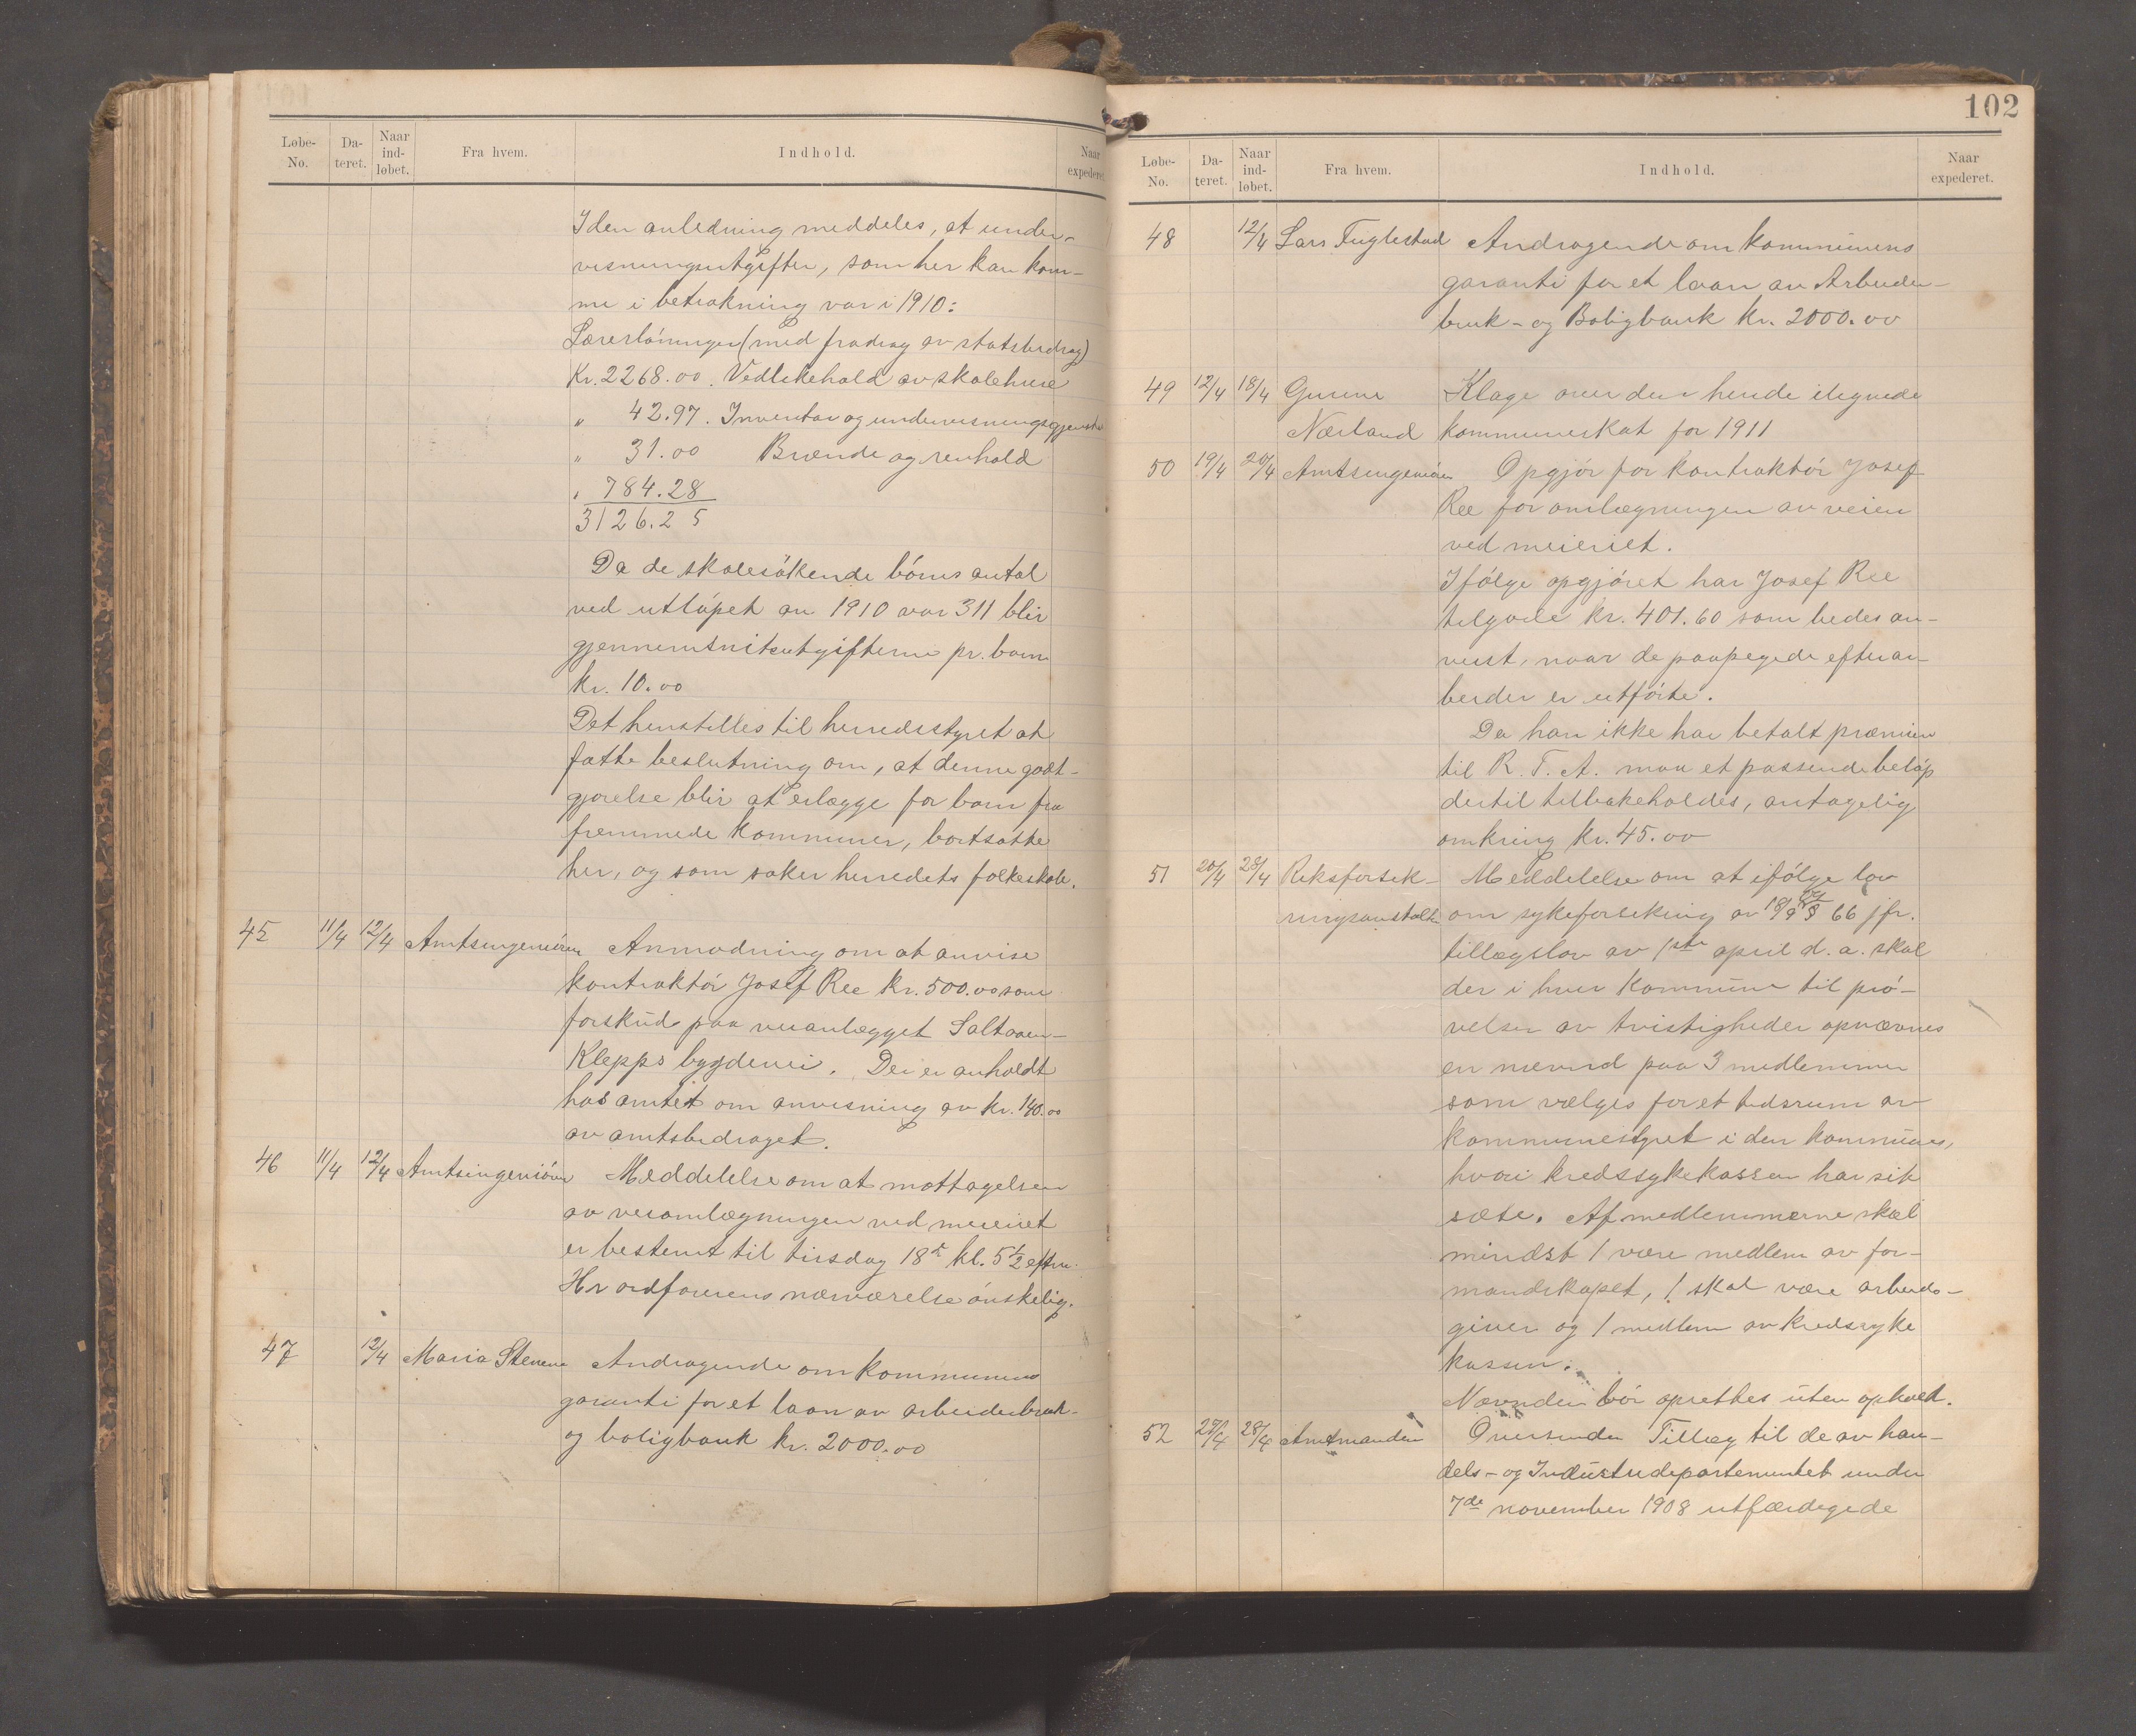 Løbe-No. Da-teret. Naar ind-løbet. Fra hvem. Indhold. Naar expederet.
I den anledning meddeles, at under-
visningsutgifter, som her kan kom-
me i betrakning var i 1910:
Lærerlönninger (med fradrag av statsbidrag)
Kr. 2268.00. Vedlikehold av skolehuse
" 42.97. Inventar og undervisningsgjenst
" 31.00 Brænde og renhold
" 784.28
3126.25
Da de skolesökende börns antal
ved utlöpet av 1910 var 311 blir
gjennemsnitsutgifterne pr. barn
kr. 10.00
Det henstilles til herredsstyret at
fatte beslutning om, at denne godt-
gjorelse blir at erlægge for barn fra
fremmede kommuner, bortsatte
her, og som søker herredets folkeskole.
45 11/4 12/4 Amtsingeniören Anmodning om at anvise
kontraktör Josef Ree kr. 500.00 som
forskud paa veianlægget Saltaaen-
Klepps bygdevei. Der er anholdt
hos amtet om anvisning av kr. 140.00
av amtsbidraget.
46 11/4 12/4 Amtsingeniören Meddelelse om at mottagelsen
av veiomlægningen ved meieriet
er bestemt til tirsdag 18de kl. 5 1/2 efterm.
Hr ordförerens nærværelse önskelig.
47 12/4 Maria Stenene Andragende om kommunens
garanti for et laan av arbeiderbruk-
og boligbank kr. 2000.00
102
Løbe-No. Da-teret. Naar ind-løbet. Fra hvem. Indhold. Naar expederet.
48 12/4 Lars Fuglestad Andragende om kommunens
garanti for et laan av Arbeider-
bruk- og Boligbank kr. 2000.00
49 12/4 18/4 Gurine Klage over den hende ilignede
Nærland kommuneskat for 1911
50 19/4 20/4 Amtsingeniören Opgjör for kontraktör Josef
Ree for omlægningen av veien
ved meieriet.
Ifölge opgjöret har Josef Ree
tilgode kr. 401.60 som bedes an-
vist, naar de paapegede efterar-
beider er utförte.
Da han ikke har betalt præmien
til R. F. A. maa et passende belöp
dertil tilbakeholdes, antagelig
omkring kr. 45.00
51 20/4 28/4 Riksforsik- Meddelelse om at ifölge lov
ringsanstalten om sykeforsikring av 18/9 § 66 jfr.
tillægslov av 1ste april d. a. skal
der i hver kommune til prö-
velser av tvistigheder opnævnes
en nævnd paa 3 medlemmer
som vælges for et tidsrum av
kommunestyret i den kommune,
hvori kredssykekassen har sit
sæte. Af medlemmerne skal
mindst 1 være medlem av for-
mandskapet, 1 skal være arbeids-
giver og 1 medlem av kredssyke
kassen.
Nævnden bör oprettes uten ophold.
52 28/4 Amtmanden Oversender Tillæg til de av han-
dels- og Industridepartementet under
7de november 1908 utfærdigede